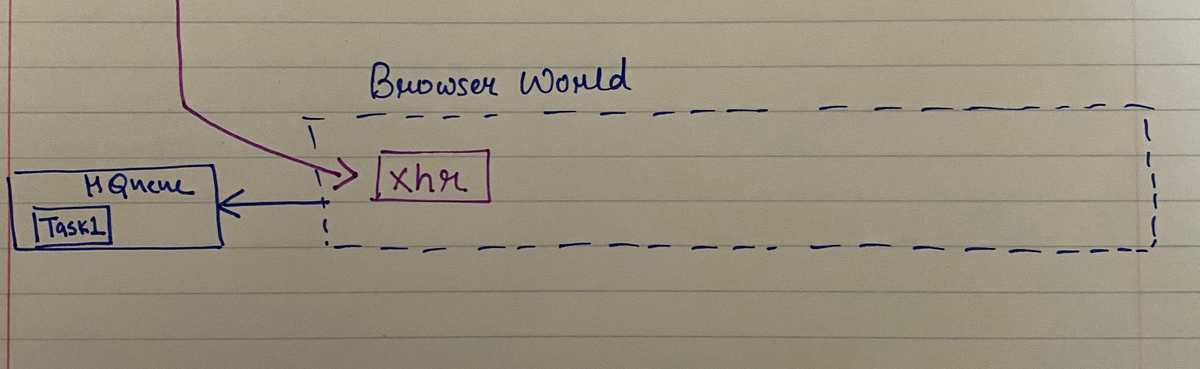 Browser World
xhr
M Queue
Task1